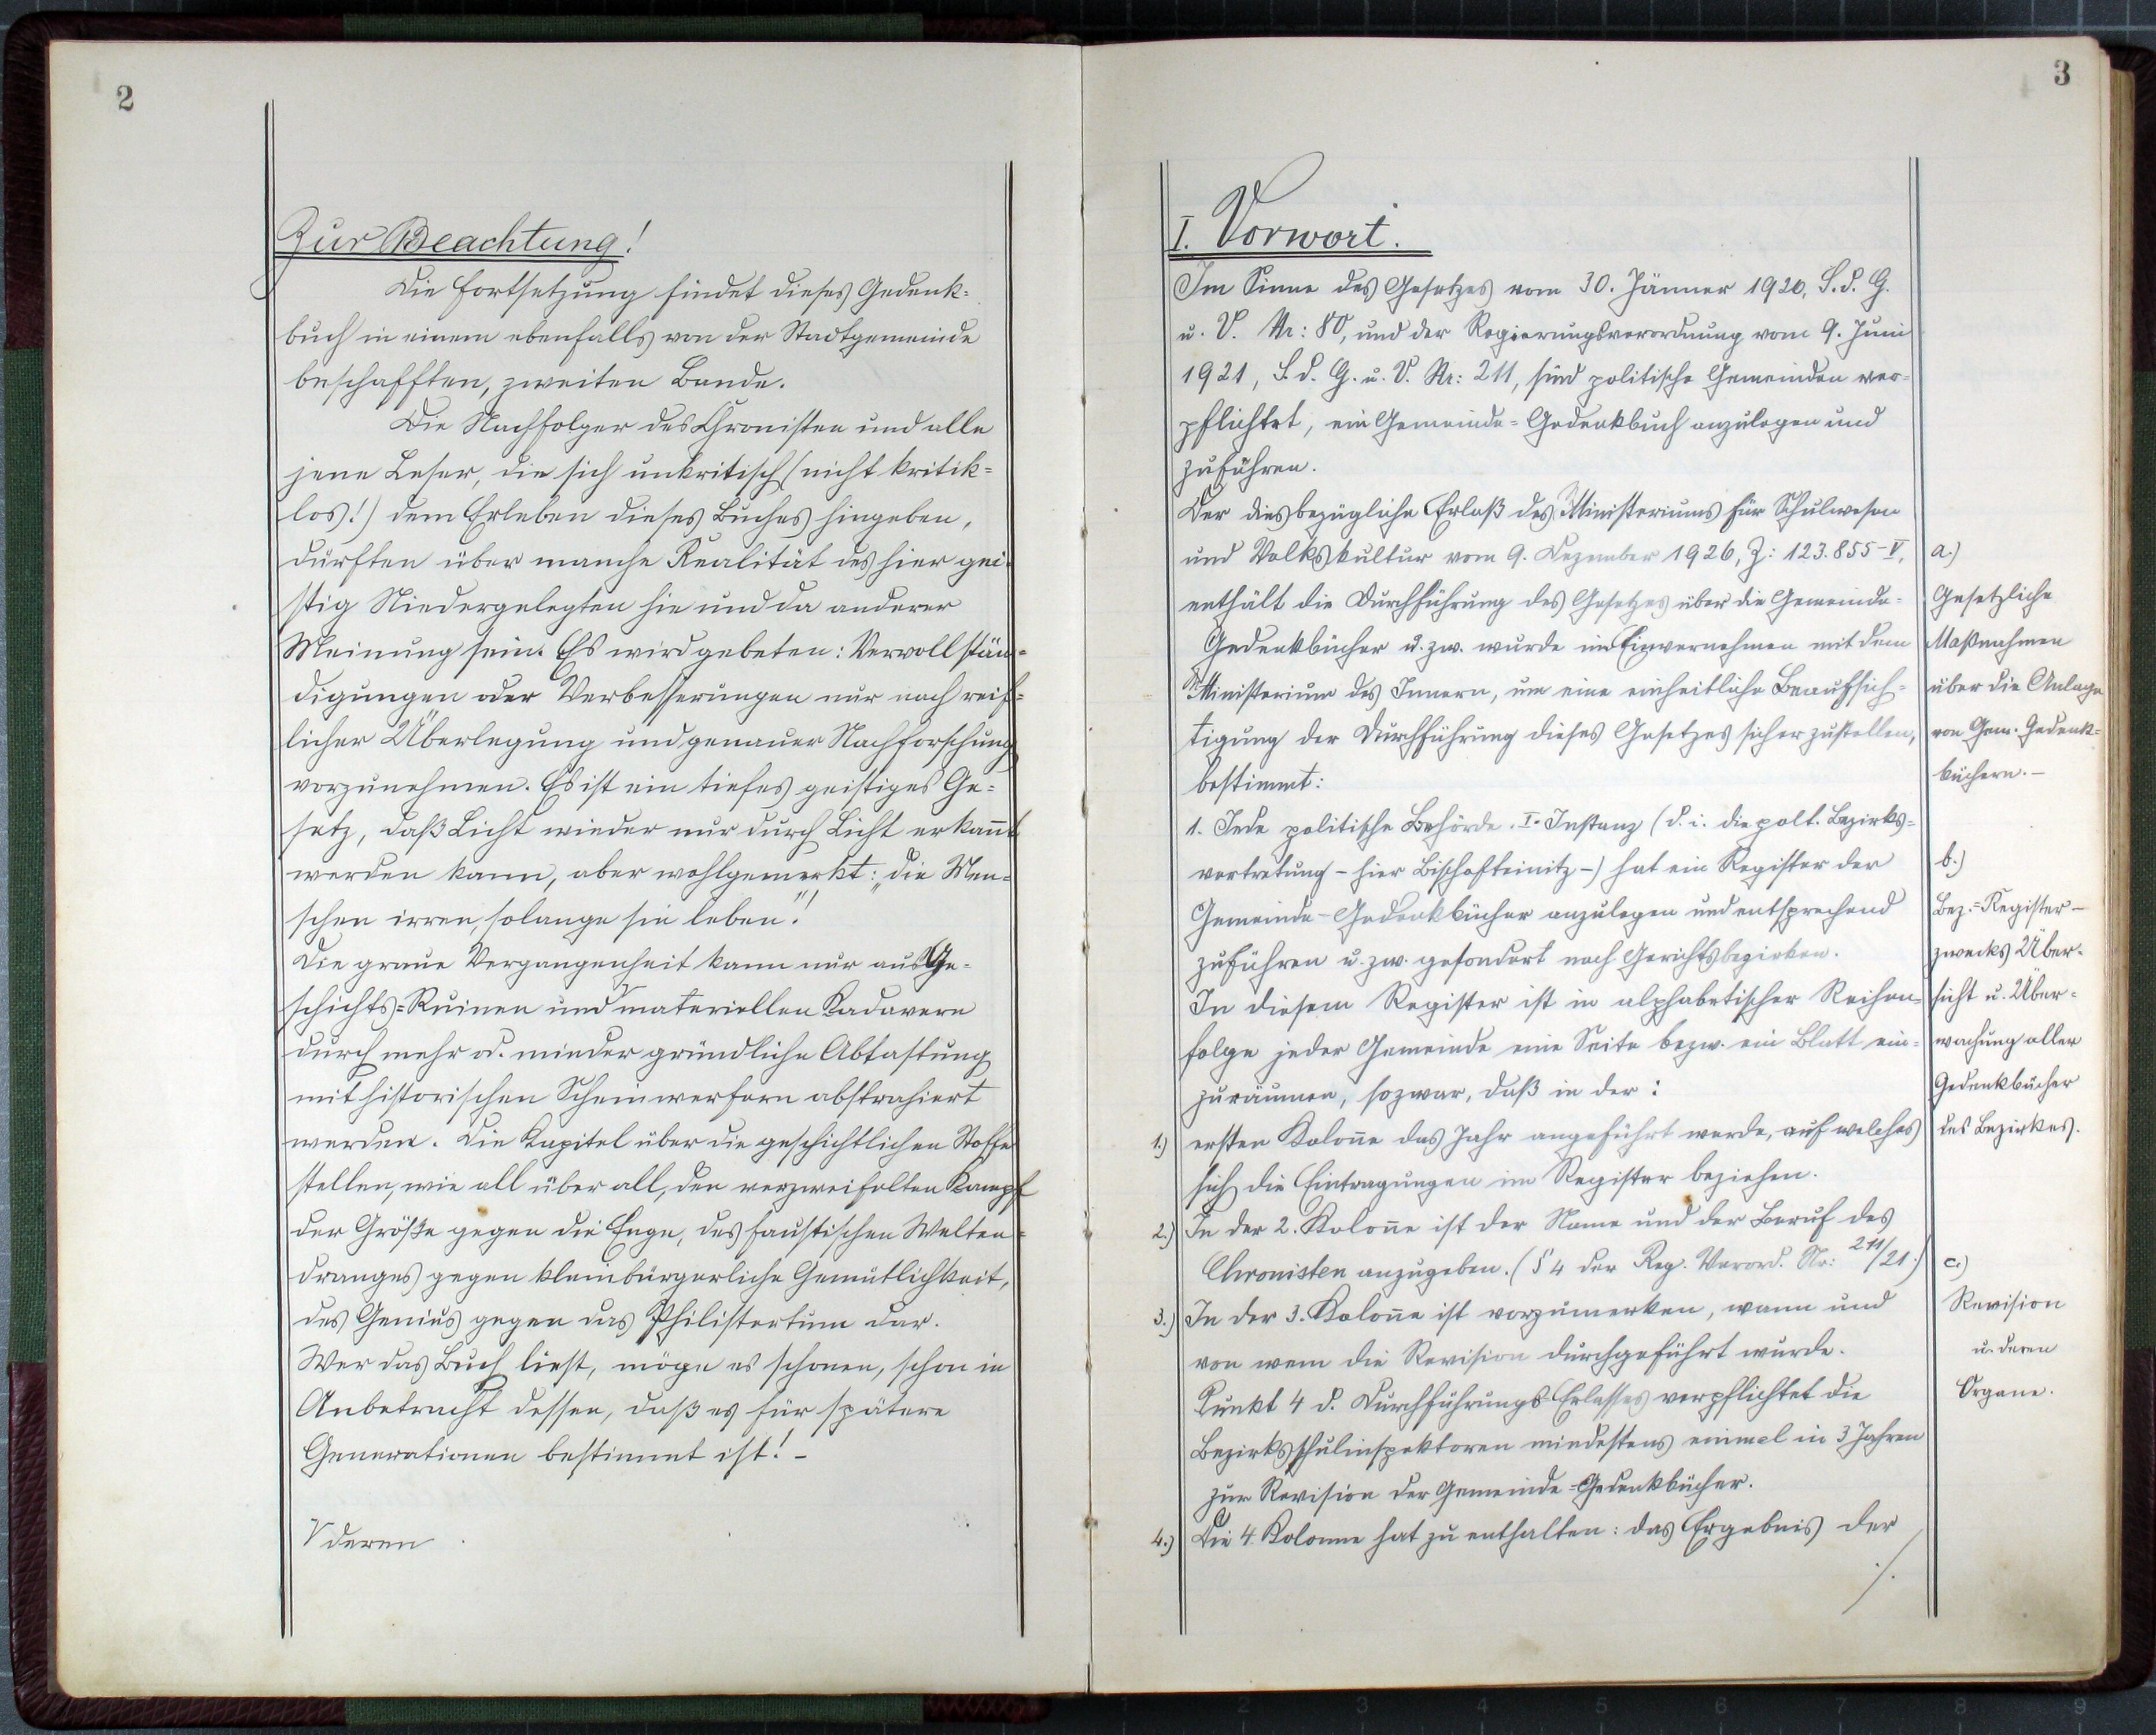 2
Zur Beachtung!
Die Fortsetzung findet dieses Gedenk=
buch in einem ebenfalls von der Stadtgemeinde
beschafften, zweiten Bande.
Die Nachfolger des Chronisten und alle
jene Leser, die sich unkritisch (nicht kritik=
los!) dem Erleben dieses Buches hingeben,
dürften über manche Realität des hier gei-
stig Niedergelegten hie und da anderer
Meinung sein. Es wird gebeten: Vervollstän=
digungen oder Verbesserungen nur nach reif=
licher Überlegung und genauer Nachforschung
vorzunehmen. Es ist ein tiefes geistiges Ge=
setz, daß Licht wieder nur durch Licht erkannt
werden kann, aber wohlgemerkt: „die Men=
schen irren, solange sie leben“!
Die graue Vergangenheit kann nur aus Ge=
schichts=Ruinen und √ materiellen Kadavern
durch mehr od. minder gründliche Abtastung
mit historischen Scheinwerfern abstrahiert
werden. Die Kapitel über die geschichtlichen Stoffe
stellen, wie all überall, den verzweifelten Kampf
der Größe gegen die Enge, des faustischen Welten=
dranges gegen kleinbürgerliche Gemütlichkeit,
des Genius gegen das Philistertum dar.
Wer das Buch liest, möge es schonen, schon in
Anbetracht dessen, daß es für spätere
Generationen bestimmt ist! -
√ deren
3
I. Vorwort.
Im Sinne des Gesetzes vom 30. Jänner 1920, S. d. G.
u. V. Nr: 80, und der Regierungsverordnung vom 9. Juni
1921, S. d. G. u. V. Nr: 211, sind politische Gemeinden ver=
pflichtet, ein Gemeinde=Gedenkbuch anzulegen und
zuführen.
Der diesbezügliche Erlaß des Ministeriums für Schulwesen
und Volkskultur vom 9. Dezember 1926, Z: 123.855-V,
enthält die Durchführung des Gesetzes über die Gemeinde=
Gedenkbücher u. zw. wurde im Einvernehmen mit dem
Ministerium des Innern, um eine einheitliche Beaufsich=
tigung der Durchführung dieses Gesetzes sicherzustellen,
bestimmt:
1. Jede politische Behörde I. Instanz (d. i. die polt. Bezirks=
vertretung - hier Bischofteinitz -) hat ein Register der
Gemeinde-Gedenkbücher anzulegen und entsprechend
zuführen u. zw. gesondert nach Gerichtsbezirken.
In diesem Register ist in alphabetischer Reihen=
folge jeder Gemeinde eine Seite bezw. ein Blatt ein=
zuräumen, sozwar, daß in der:
1.) ersten Kolonne das Jahr angeführt werde, auf welches
sich die Eintragungen im Register beziehen.
2.) In der 2. Kolonne ist der Name und der Beruf des
Chronisten anzugeben. (§ 4 der Reg. Verord. Nr: 211/21.)
3.) In der 3. Kolonne ist vorzumerken, wann und
von wem die Revision durchgeführt wurde.
Punkt 4 d. Durchführungs-Erlasses verpflichtet die
Bezirksschulinspektoren mindestens einmal in 3 Jahren
zur Revision der Gemeinde=Gedenkbücher.
4.) Die 4. Kolonne hat zu enthalten: das Ergebnis der
./.
a.)
Gesetzliche
Maßnahmen
über die Anlage
von Gem. Gedenk=
büchern. -
b.)
Bez.=Register -
zwecks Über=
sicht u. Über=
wachung aller
Gedenkbücher
des Bezirkes.
c.)
Revision
u. deren
Organe.
1 2 3 4 5 6 7 8 9